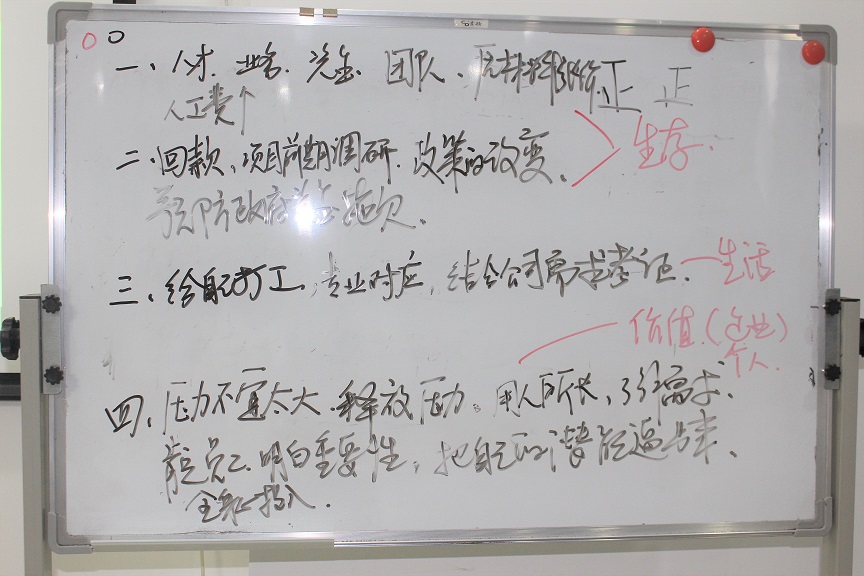 一、人才、业务、资金、团队、原材料涨价 正 正
人工费↑
二、回款、项目前期调研、政策的改变、
预防政府单位拖欠、
生存.
三、给自己打工、专业对应、结合公司需求考证. 一生活
价值.(企业)
个人.
四、压力不宜太大.释放压力。用人所长、了解需求.
员工.明白重要性,把自己的潜能逼出来、
全身心投入.